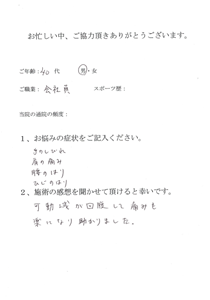 お忙しい中、ご協力頂きありがとうございます。
ご年齢：40代 男・女
ご職業：会社員 スポーツ歴：
当院の通院の頻度：
1、お悩みの症状をご記入ください。
きのしびれ
肩の痛み
腰のはり
ひじのはり
2、施術の感想を聞かせて頂けると幸いです。
可動域が回復して痛みも
楽になり助かりました。